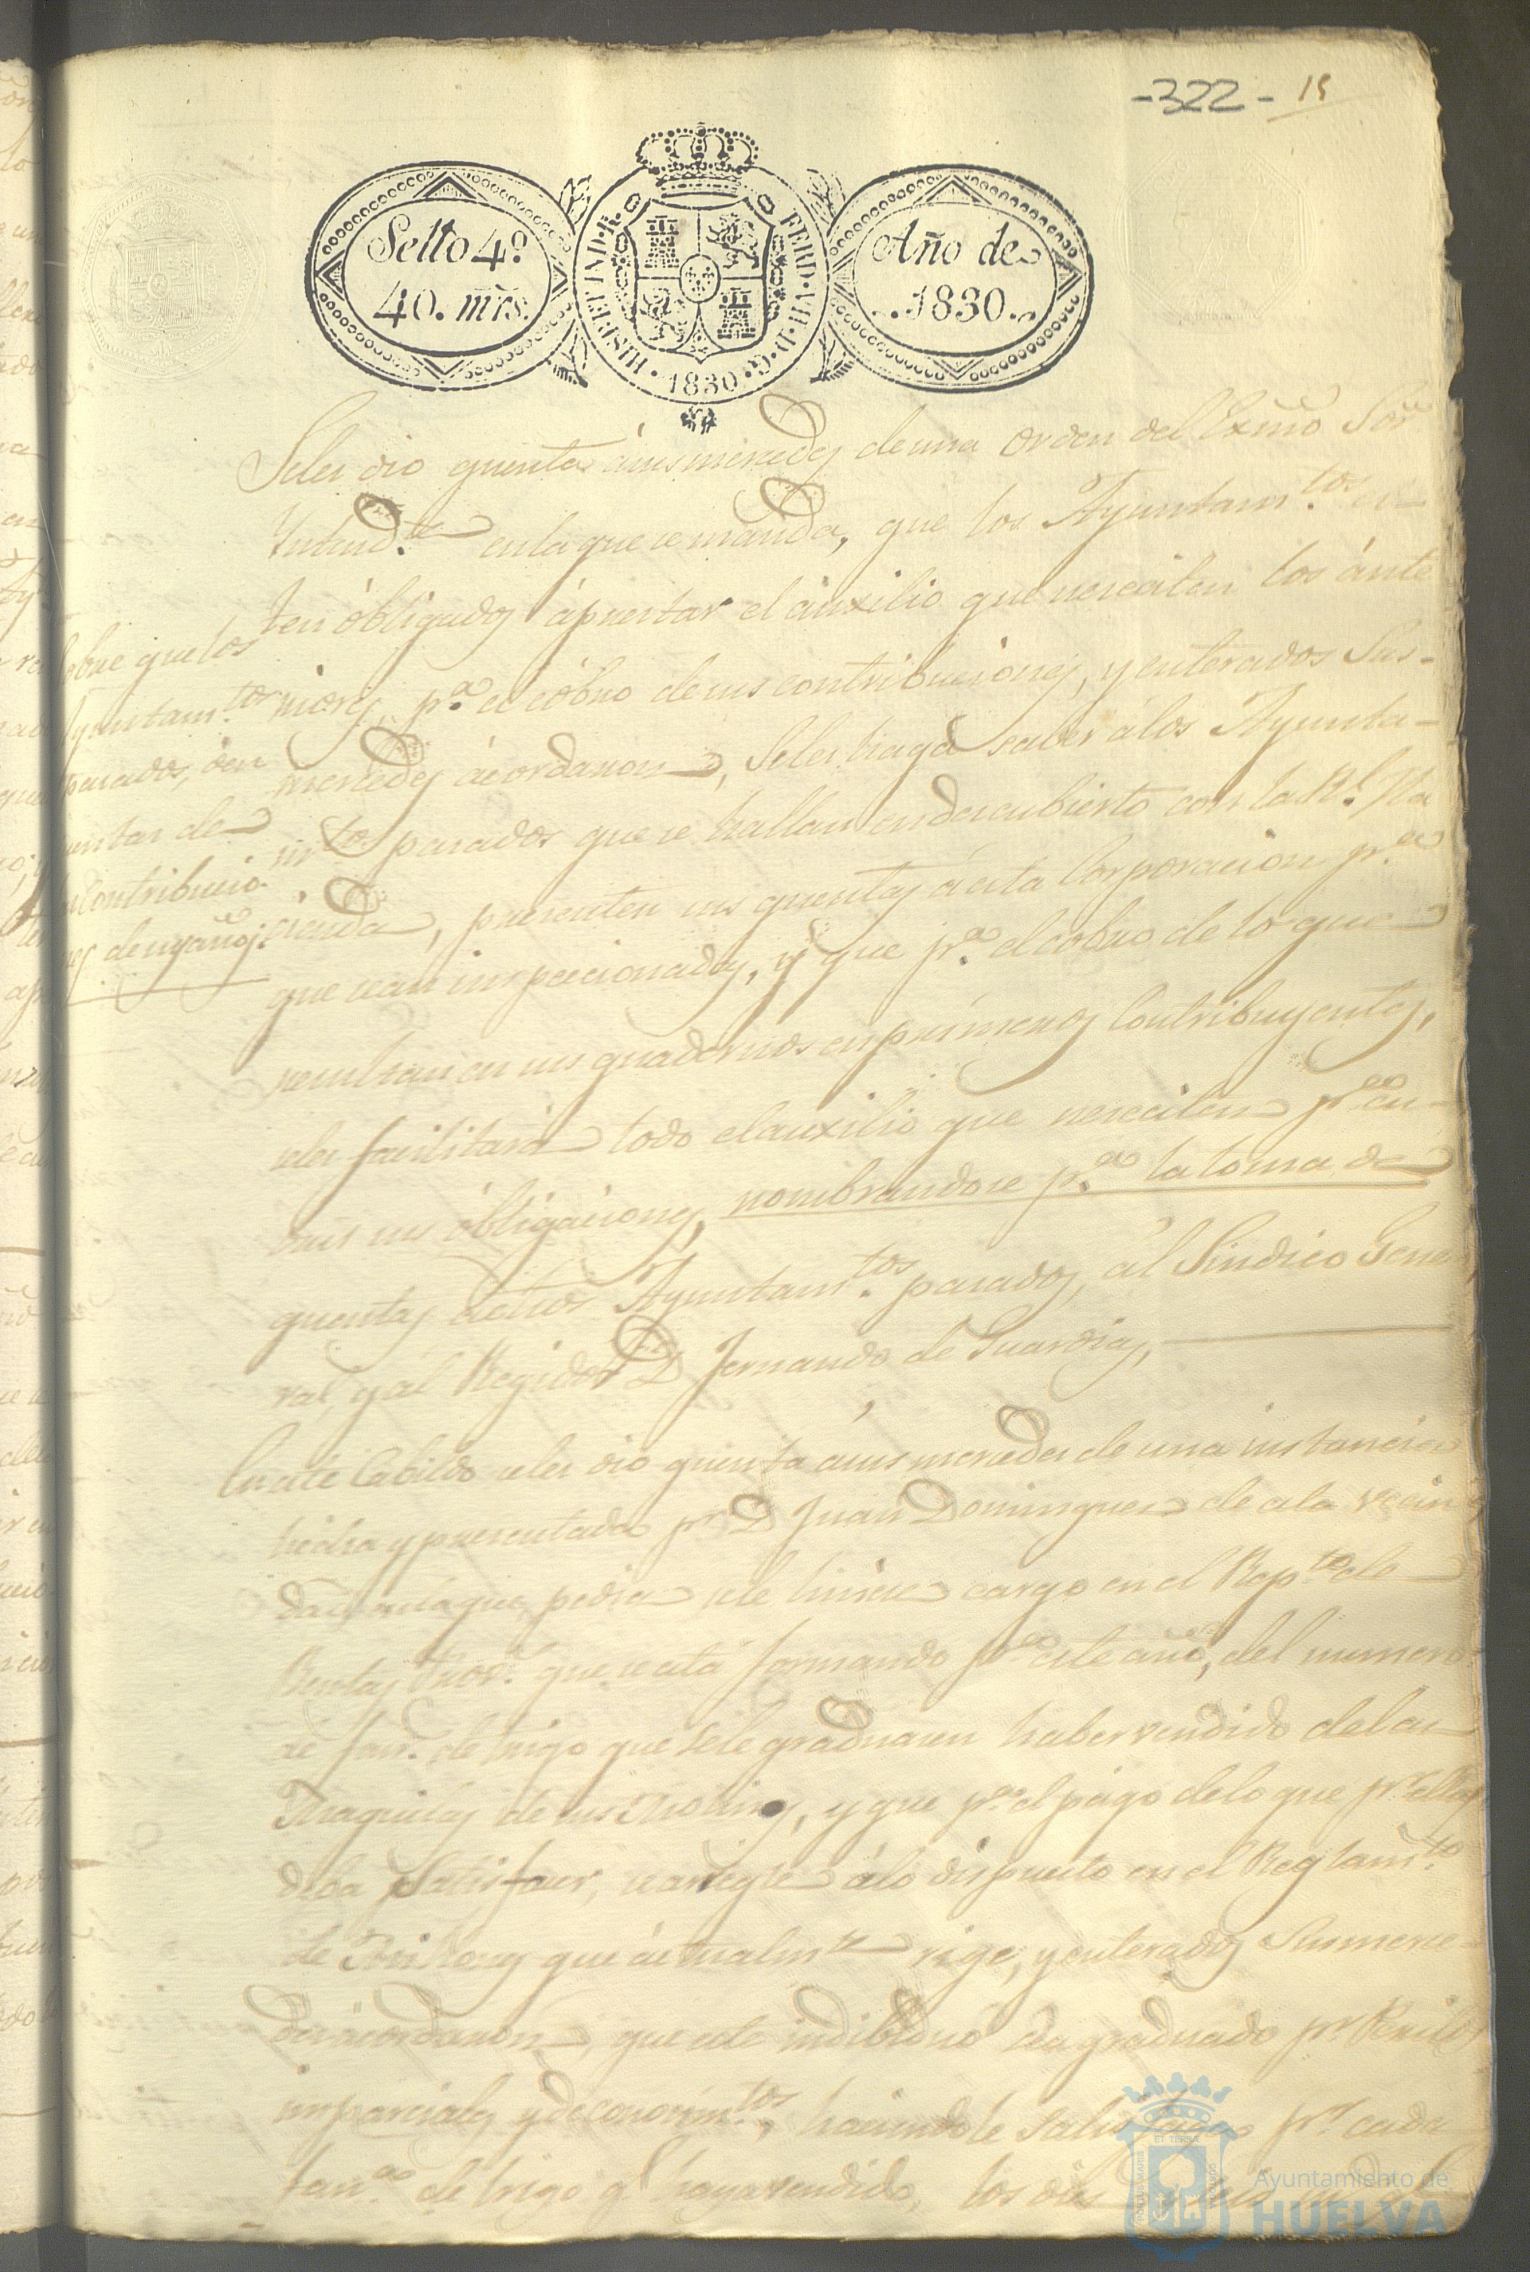 -322- 15
Sello 4º
40. mrs.
HISP. ET IND. R. FERD. VII. D. G. 1830
Año de
1830.
Se les dio quenta á sus mercedes de una orden del Exmo Sor
Intend.te en la que se manda, que los Ayuntam.tos es-
ten óbligados áprestar el áuxilio que nesesiten los ánte
riores, p.a el cóbro de sus contribuciones, y enterados Sus-
mercedes ácordaron, Se les haga saber álos Ayunta-
m.tos pasados que se hallan en descubierto con la Rl. Ha
cienda, presenten sus quentas á esta Corporacion p.a
que sean inspeccionadas, y que p.a el cobro de lo que
resultan en sus quadernos en primeros Contribuyentes,
se les facilitará todo el auxilio que nesesiten p.a cu-
brir sus óbligaciones, nombrandose p.a la toma de
quentas de los Ayuntam.tos pasados, al Sindico Gene
ral, y al Regidor D Fernando de Guardias,
Sobre que los
Ayuntam.tos
pasados, den
quentas de
las Contribucio
nes de sus años.
En este Cabildo se les dio quenta á sus mercedes de una instancia
hecha y presentada pr D Juan Dominguez de esta vecin
dad, en la que pedia se le hiciese cargo en el Rep.to de
Rentas Prov.s que se está formando p.a este año, del numero
de fan.s de trigo que se le graduasen haber vendido de las
Maquilas de sus Molinos, y que p.a el pago de lo que pr ellas
deba satisfacer, se arregle á lo dispuesto en el Reglam.to
de Puestos que áctualm.te rige, y enterados Susmerce-
des ácordaron, que este indibiduo sea graduado pr Peritos
imparciales y de conocim.tos, haciendole satisfaga pr cada
fan.a de trigo q.e haya vendido, los dies
Ayuntamiento de
HUELVA